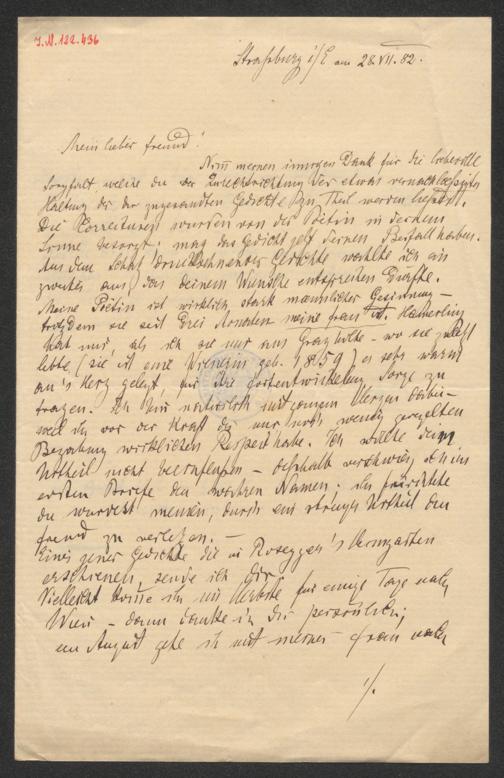 J.N. 122.436
Strassburg i/E am 28. VII. 82.
Mein lieber Freund!
Nimm meinen innigen Dank für die liebevolle
Sorgfalt, welche du der Zurechtrichtung der etwas vernachlässigten
Haltung der dir zugesandten Gedichte zu Theil werden ließest.
Die Korrekturen wurden von der Poëtin in deinem
Sinne besorgt; mag das Gedicht jetzt deinen Beifall haben.
Aus dem Schatz Gedichte wählte ich ein
zweites aus, das deinem Wunsche entsprechen dürfte.
Meine Poëtin ist wirklich stark männlicher Gesinnung –
trotzdem sie seit drei Monaten meine Frau ist. Hamerling
hat mir, als ich sie mir aus Graz holte – wo sie zuletzt
lebte (sie ist eine Wienerin geb. 1859) es sehr warm
an's Herz gelegt, für ihre Fortentwickelung Sorge zu
tragen. Ich bin natürlich mit ganzem Herzen dabei –
weil ich vor der Kraft der nur noch wenig geregelten
Begabung wirklichen Respect habe. Ich wollte dein
Urtheil nicht beeinflussen – deßhalb verschwieg ich im
ersten Briefe den wahren Namen; ich fürchtete
du würdest meinen, durch ein strenges Urtheil den
Freund zu verletzen. –
Eines jener Gedichte die in Rosegger's Heimgarten
erschienen, sende ich dir.
Vielleicht komme ich im Herbste für einige Tage nach
Wien – dann danke ich dir persönlich;
im August gehe ich mit meiner Frau nach
./.